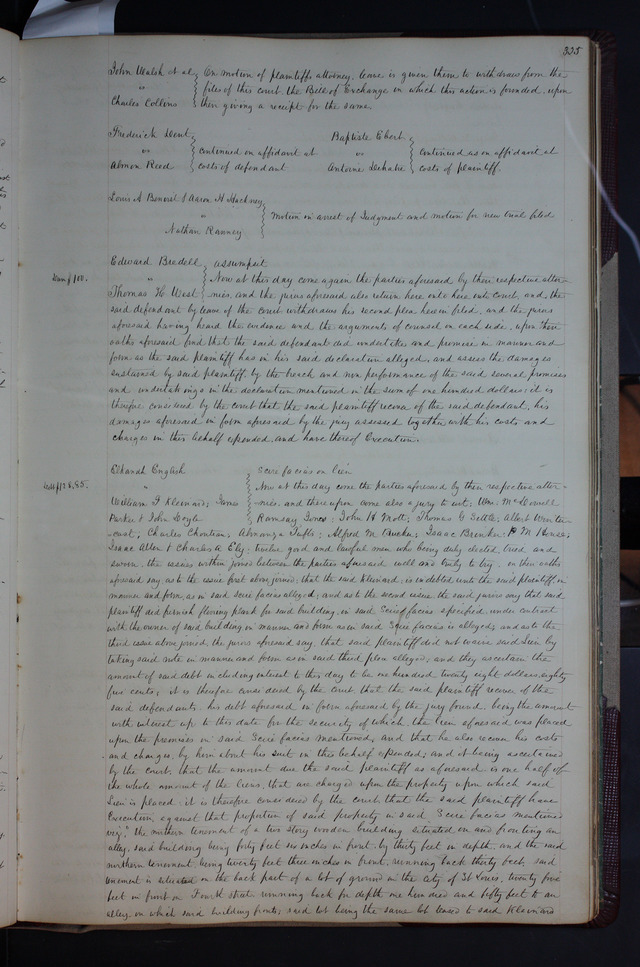 335
John Walsh et al } On motion of plaintiffs attorney, leave is given them to withdraw from the
" } files of this court the Bill of Exchange on which this action is founded, upon
Charles Collins } their giving a receipt for the same.
Frederick Dent } Baptiste Ebert }
vs } continued on affidavit at vs } continued as on affidavit at
Almon Reed } costs of defendant Antoine } costs of plaintiff.
Louis A Benoist & Aaron H Hackney }
" } Motion in arrest of Judgment and motion for new trial filed
Nathan Ranney }
Edward Bredell } assumpsit
Dam $100. " } Now at this day come again the parties aforesaid by their respective attor-
Thomas H West } nies, and the jurors aforesaid also return here into court, and the
said defendant by leave of the court withdraws his second plea herein filed, and the jurors
aforesaid having heard the evidence and the arguments of counsel on each side, upon their
oaths aforesaid find that the said defendant did undertake and promise in manner and
form as the said plaintiff has in his said declaration alleged, and assess the damages
sustained by said plaintiff, by the breach and non performance of the said several promises
and undertakings in the declaration mentioned in the sum of one hundred dollars: it is
therefore considered by the court that the said plaintiff recover of the said defendant, his
damages aforesaid in form aforesaid by the jury assessed together with his costs and
charges in this behalf expended, and have thereof Execution.
Elkanah English } Scire facias on lien
Debt $128,85. " } Now at this day come the parties aforesaid by their respective attor-
William F Kleinard, James } nies, and thereupon come also a jury to wit: Wm. McDowell
Parker & John Doyle } Ramsay Jones: John H Mott; Thomas G Settle; Albert
Charles Chouteau; Tufts; Alfred M Isaac Brinker; M House;
Isaac Allen & Charles A Ely: twelve good and lawful men who being duly elected, tried and
sworn the issues within joined between the parties aforesaid well and truly to try, on their oaths
aforesaid say, as to the issue first above joined, that the said Kleinard, is indebted unto the said plaintiff in
manner and form, as in said Scire facias alleged; and as to the second issue the said jurors say that said
plaintiff did furnish flooring plank for said building in said Scire facias specified, under contract
with the owner of said building in manner and form as in said Scire facias is alleged; and as to the
third issue above joined, the jurors aforesaid say, that said plaintiff did not waive said Lien by
taking said note in manner and form as in said third plea alleged, and they ascertain the
amount of said debt including interest to this day to be one hundred twenty eight dollars eighty
five cents; it is therefore considered by the court that the said plaintiff recover of the
said defendants his debt aforesaid in form aforesaid by the jury found, being the amount
with interest up to this date for the security of which, the lien aforesaid was placed
upon the premises in said Scire facias mentioned, and that he also recover his costs
and charges by him about his suit in this behalf expended; and it being ascertained
by the court, that the amount due the said plaintiff as aforesaid is one half of
the whole amount of the liens, that are charged upon the property upon which said
Lien is placed: it is therefore considered by the court that the said plaintiff have
Execution against that proportion of said property in said Scire facias mentioned
viz: "the northern tenement of a two story wooden building situated on and fronting an
alley, said building being forty feet six inches in front by thirty feet in depth, and the said
northern tenement being twenty feet three inches in front, running back thirty feet, said
tenement is situated on the back part of a lot of ground in the City of St Louis, twenty five
feet in front on Fourth street running back for depth one hundred and fifty feet to an
alley, on which said building fronts; said lot being the same lot leased to said Kleinard